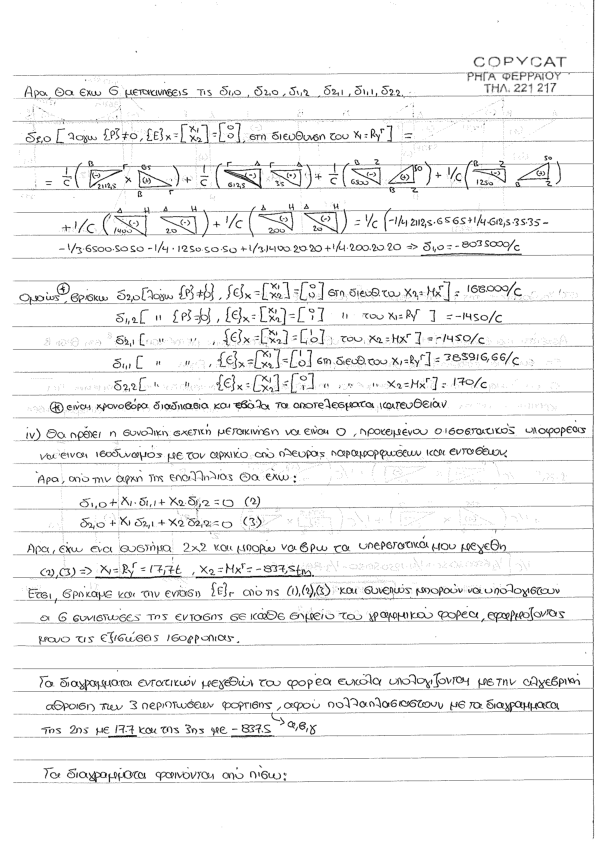 COPYCAT
ΡΗΓΑ ΦΕΡΡΑΙΟΥ
ΤΗΛ. 221 217
Αρα, θα έχω 6 μετακινήσεις τις δ1,0, δ2,0, δ1,2, δ2,1, δ1,1, δ2,2.
δ1,0 [ λόγω {P}≠0, {E}x = [x1 x2] = [0 0], στη διεύθυνση του x1=Ry^r ] =
= 1/c ( 2112,5 x 65 ) + 1/c ( 612,5 35 ) + 1/c ( 6500 50 ) + 1/c ( 1250 50 )
+ 1/c ( 1400 20 ) + 1/c ( 200 20 ) = 1/c (-1/4 2112,5·65 65 + 1/4·612,5·35·35 -
- 1/3·6500·50·50 - 1/4·1250·50·50 + 1/3·1400·20·20 + 1/4·200·20·20 => δ1,0 = -8035000/c
Ομοίως, βρίσκω δ2,0 [λόγω {P}≠0, {E}x = [x1 x2] = [0 0] στη διευθ του x2=Mx^r] = 168.000/c
δ1,2 [ " {P}=0, {E}x = [x1 x2] = [0 1] " του x1=Ry^r ] = -1450/c
δ2,1 [ " " , {E}x = [x1 x2] = [1 0] " του x2=Mx^r] = -1450/c
δ1,1 [ " " , {E}x = [x1 x2] = [1 0] στη διευθ του x1=Ry^r] = 383916,66/c
δ2,2 [ " " , {E}x = [x1 x2] = [0 1] " " " x2=Mx^r] = 170/c
⊛ είναι χρονοβόρα διαδικασία και έβαλα τα αποτελέσματα κατευθείαν
iv) Θα πρέπει η συνολική σχετική μετακίνηση να είναι 0, προκειμένου ο ισοστατικός υποφορέας
να είναι ισοδύναμος με τον αρχικό από πλευράς παραμορφώσεων και εντάσεων.
Άρα, από την αρχή της επαλληλίας θα έχω:
δ1,0 + x1·δ1,1 + x2 δ1,2 = 0 (2)
δ2,0 + x1 δ2,1 + x2 δ2,2 = 0 (3)
Αρα, έχω ένα σύστημα 2x2 και μπορώ να βρω τα υπερστατικά μου μεγέθη
(2),(3) => x1 = Ry^r = 17,7t , x2 = Mx^r = -837,5tm.
Έτσι, βρήκαμε και την ένταση {E}r από τις (1),(2),(3) και συνεπώς μπορούν να υπολογιστούν
οι 6 συνιστώσες της έντασης σε κάθε σημείο του γραμμικού φορέα, εφαρμόζοντας
μόνο τις εξισώσεις ισορροπίας.
Τα διαγράμματα εντατικών μεγεθών του φορέα εύκολα υπολογίζονται με την αλγεβρική
άθροιση των 3 περιπτώσεων φόρτισης, αφού πολλαπλασιαστούν με τα διαγράμματα
της 2ης με 17.7 και της 3ης με -837.5 α,β,γ
Τα διαγράμματα φαίνονται από πίσω: